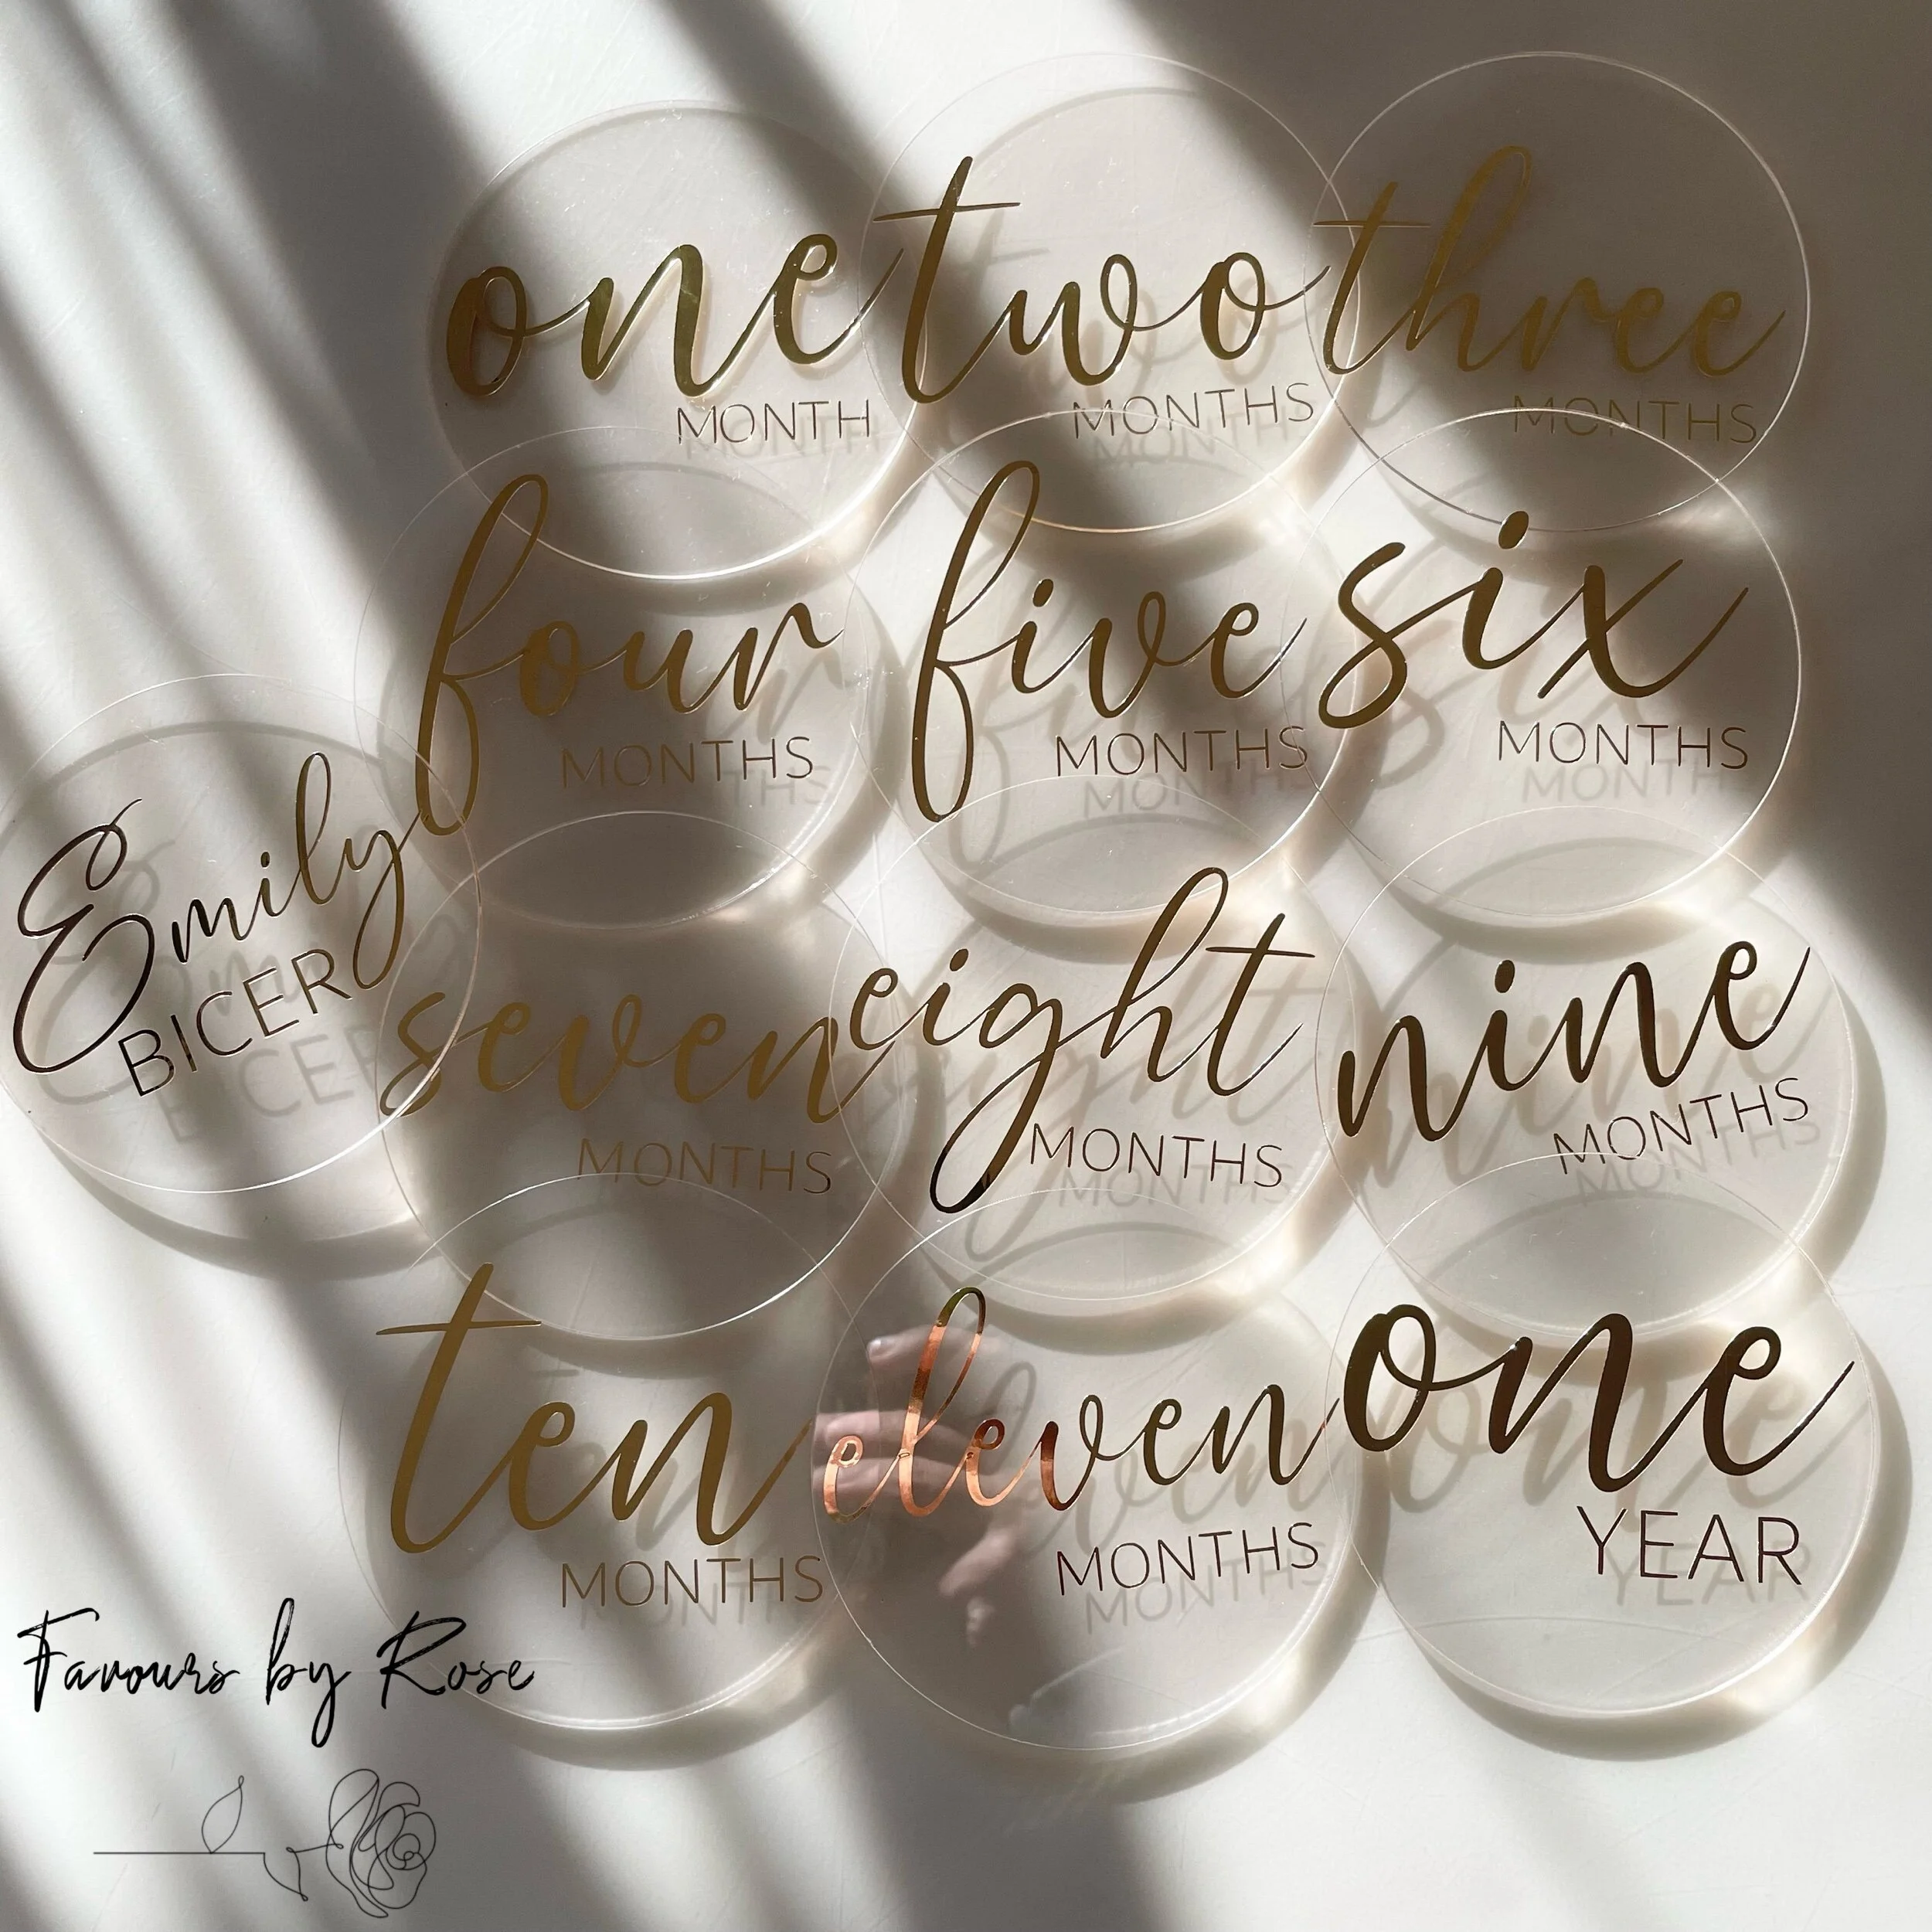 one
MONTH
two
MONTHS
three
MONTHS
four
MONTHS
five
MONTHS
six
MONTHS
Emily
BICER
seven
MONTHS
eight
MONTHS
nine
MONTHS
ten
MONTHS
eleven
MONTHS
one
YEAR
Favours by Rose